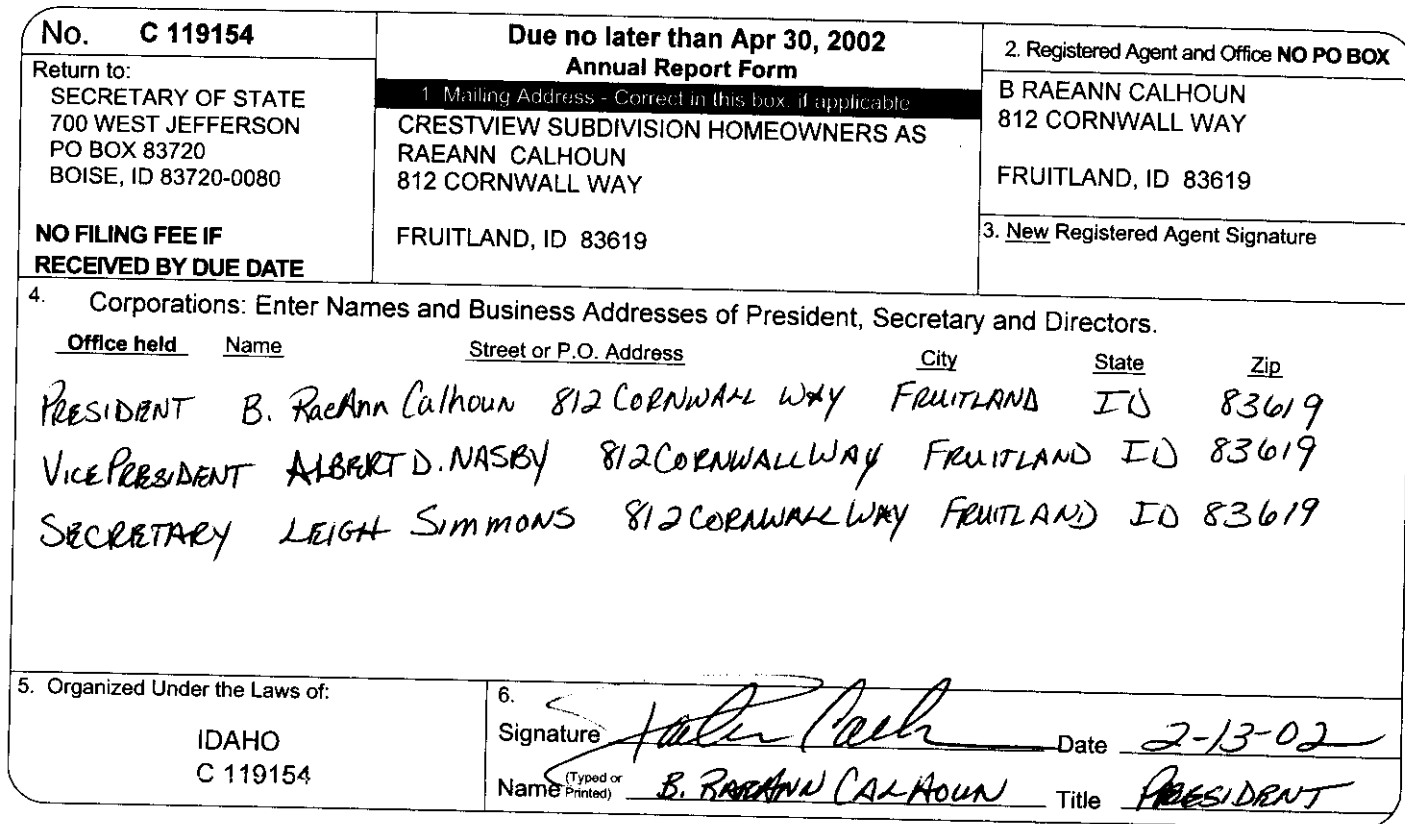 No. C 119154
Return to:
SECRETARY OF STATE
700 WEST JEFFERSON
PO BOX 83720
BOISE, ID 83720-0080
NO FILING FEE IF
RECEIVED BY DUE DATE
Due no later than Apr 30, 2002
Annual Report Form
1 Mailing Address - Correct in this box, if applicable
CRESTVIEW SUBDIVISION HOMEOWNERS AS
RAEANN CALHOUN
812 CORNWALL WAY
FRUITLAND, ID 83619
2. Registered Agent and Office NO PO BOX
B RAEANN CALHOUN
812 CORNWALL WAY
FRUITLAND, ID 83619
3. New Registered Agent Signature
4. Corporations: Enter Names and Business Addresses of President, Secretary and Directors.
Office held Name Street or P.O. Address City State Zip
PRESIDENT B. RaeAnn Calhoun 812 CORNWALL WAY FRUITLAND ID 83619
VICE PRESIDENT ALBERT D. NASBY 812 CORNWALL WAY FRUITLAND ID 83619
SECRETARY LEIGH SIMMONS 812 CORNWALL WAY FRUITLAND ID 83619
5. Organized Under the Laws of:
IDAHO
C 119154
6.
Signature Date 2-13-02
Name (Typed or Printed) B. RAEANN CALHOUN Title PRESIDENT